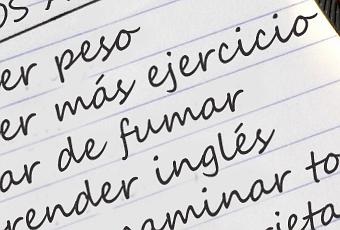 OS A
er peso
er más ejercicio
ar de fumar
render inglés
aminar to
rieta